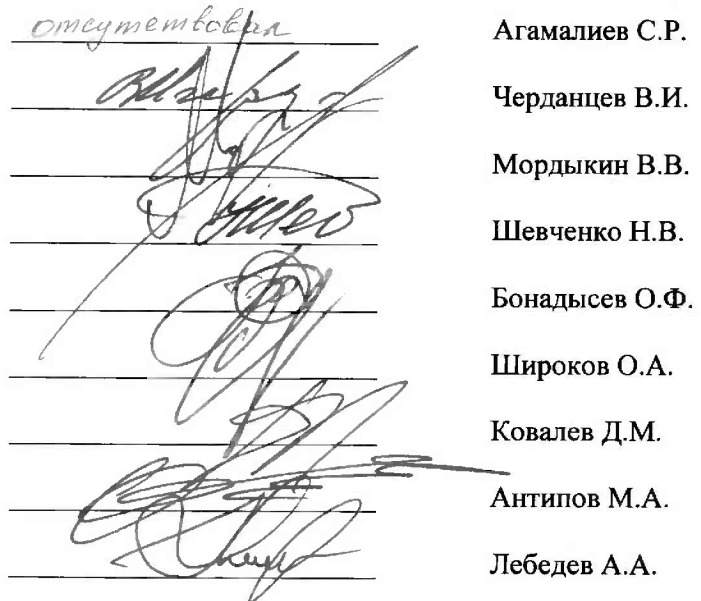 отсутствовал Агамалиев С.Р.
Черданцев В.И.
Мордыкин В.В.
Шевченко Н.В.
Бонадысев О.Ф.
Широков О.А.
Ковалев Д.М.
Антипов М.А.
Лебедев А.А.